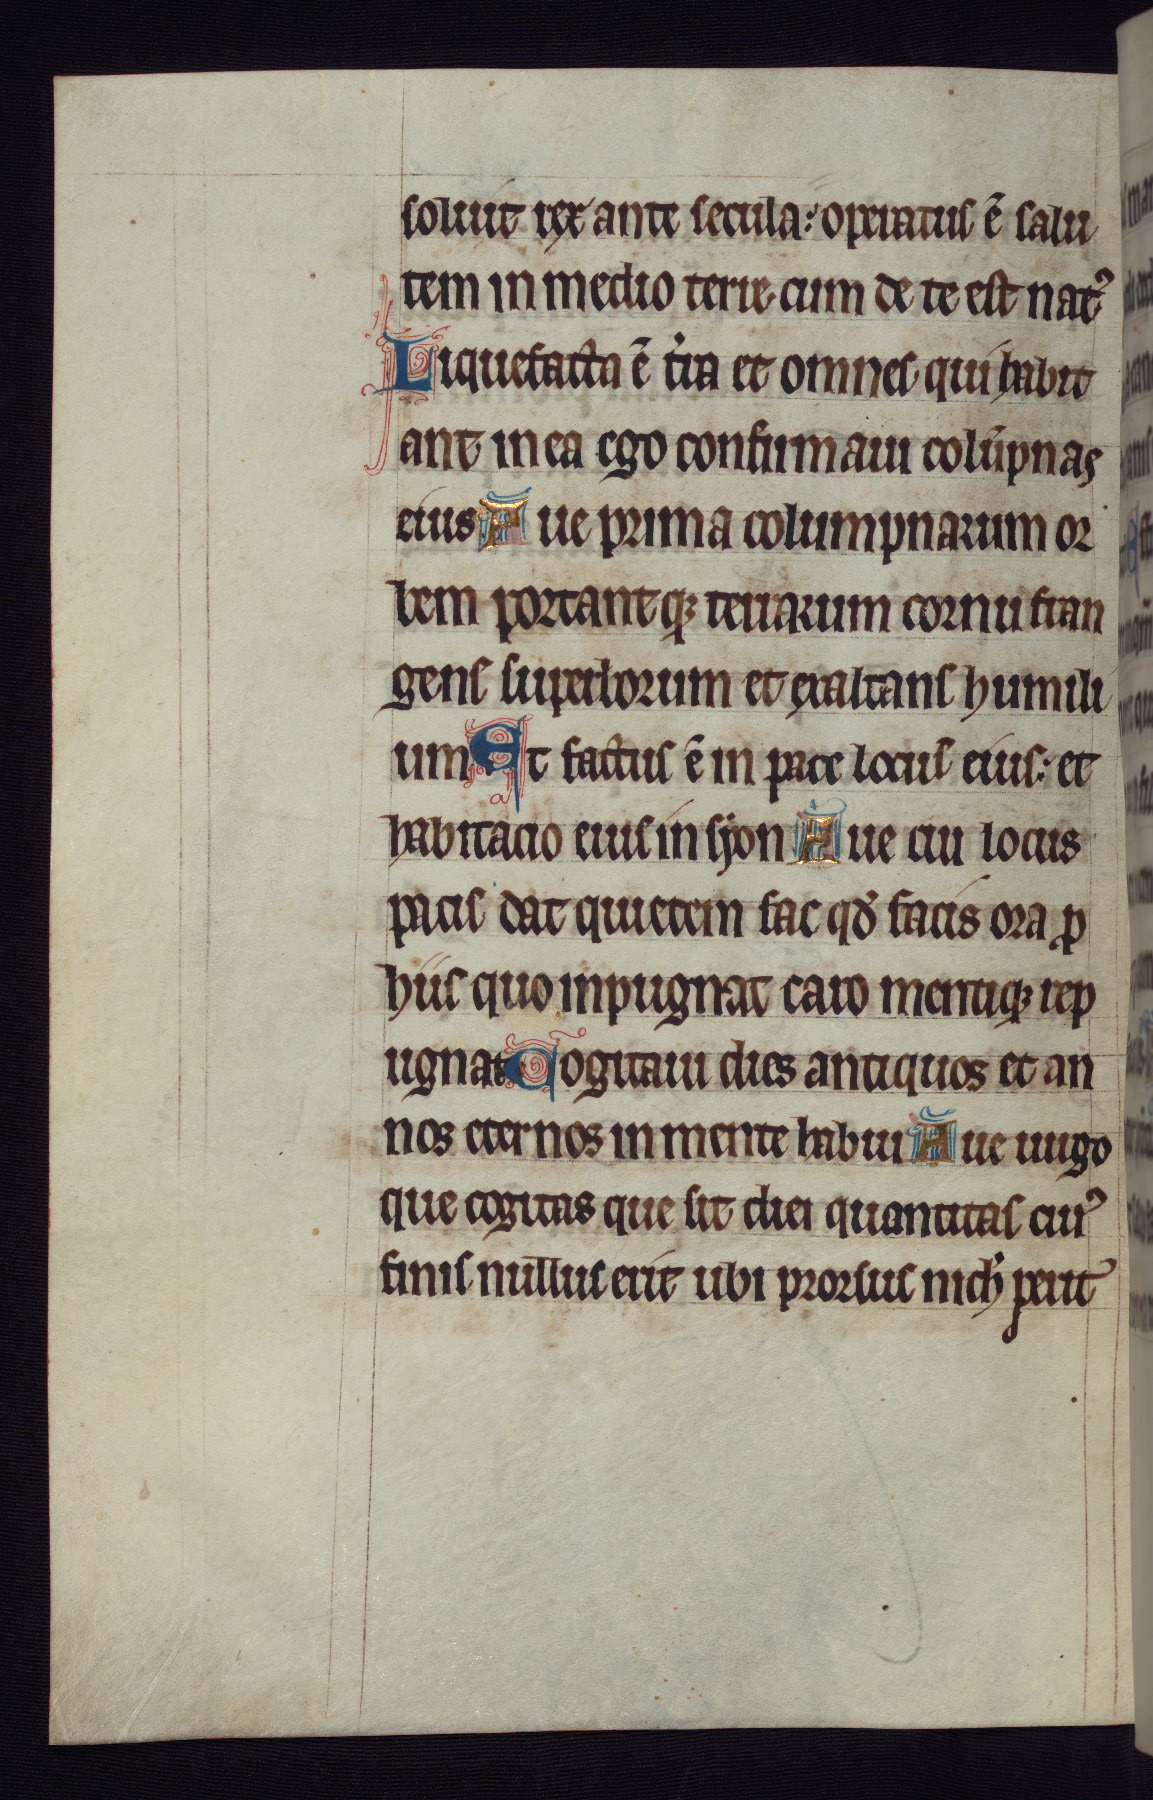 soluit rex ante secula: operatus ē salu
tem in medio terre cum de te est natꝰ
Liquefacta ē t̉ra et omnes qui habit
ant in ea ego confirmaui colūpnas
eius Aue prima columpnarum or
bem portantqꝫ terrarum cornu fran
gens superborum et exaltans humili
um Et factus ē in pace locus eius: et
habitacio eius in syon Aue cui locus
pacis dat quietem fac qđ facis ora ꝓ
hiis quo inpugnat caro mentiqꝫ rep
ugnat Cogitaui dies antiquos et an
nos eternos in mente habui Aue uirgo
que cogitas que sit diei quantitas cuiꝰ
finis nullus erit ubi prorsus nich̉ perit